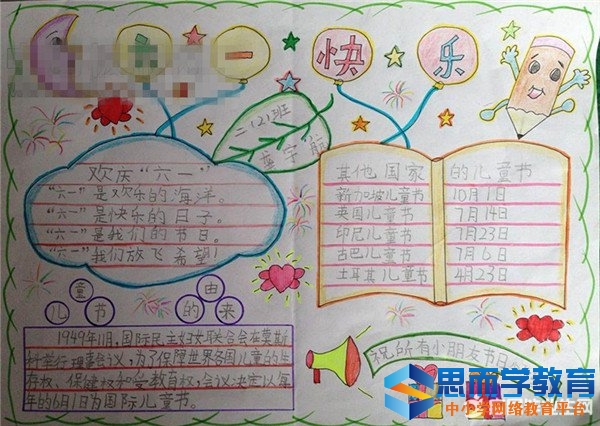 一快乐
二(2)班
欢庆"六一"
"六一"是欢乐的海洋。
"六一"是快乐的日子。
"六一"是我们的节日。
"六一"我们放飞希望!
其他国家的儿童节
新加坡儿童节 10月1日
英国儿童节 7月14日
印尼儿童节 7月23日
古巴儿童节 7月6日
土耳其儿童节 4月23日
儿童节的由来
1949年11月,国际民主妇女联合会在莫斯
科举行理事会议,为了保障世界各国儿童的生
存权、保健权和受教育权,会议决定以每
年的6月1日为国际儿童节。
祝所有小朋友节日
思而学教育
中小学网络教育平台